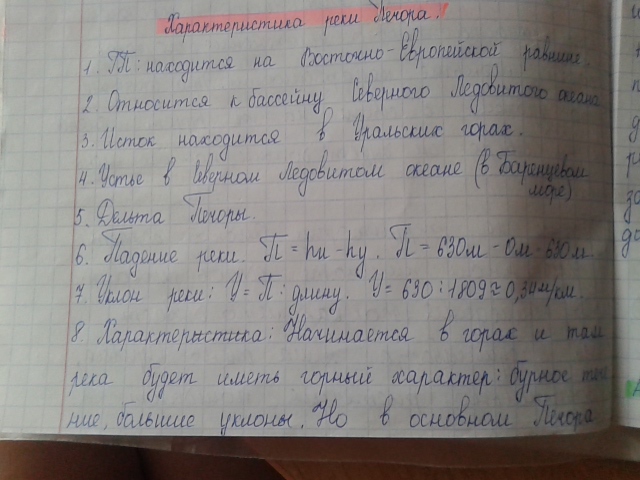 Характеристика реки Печора.
1. ГП: находится на Восточно-Европейской равнине.
2. Относится к бассейну Северного Ледовитого океана
3. Исток находится в Уральских горах.
4. Устье в Северном Ледовитом океане (в Баренцевом
море)
5. Дельта Печоры.
6. Падение реки. П = hи - hу. П = 630м - 0м - 630м
7. Уклон реки: У = П : длину. У = 630 : 1809 ≈ 0,34м/км.
8. Характерыстика: Начинается в горах и там
река будет иметь горный характер: бурное тече
ние, большие уклоны. Но в основном Печора